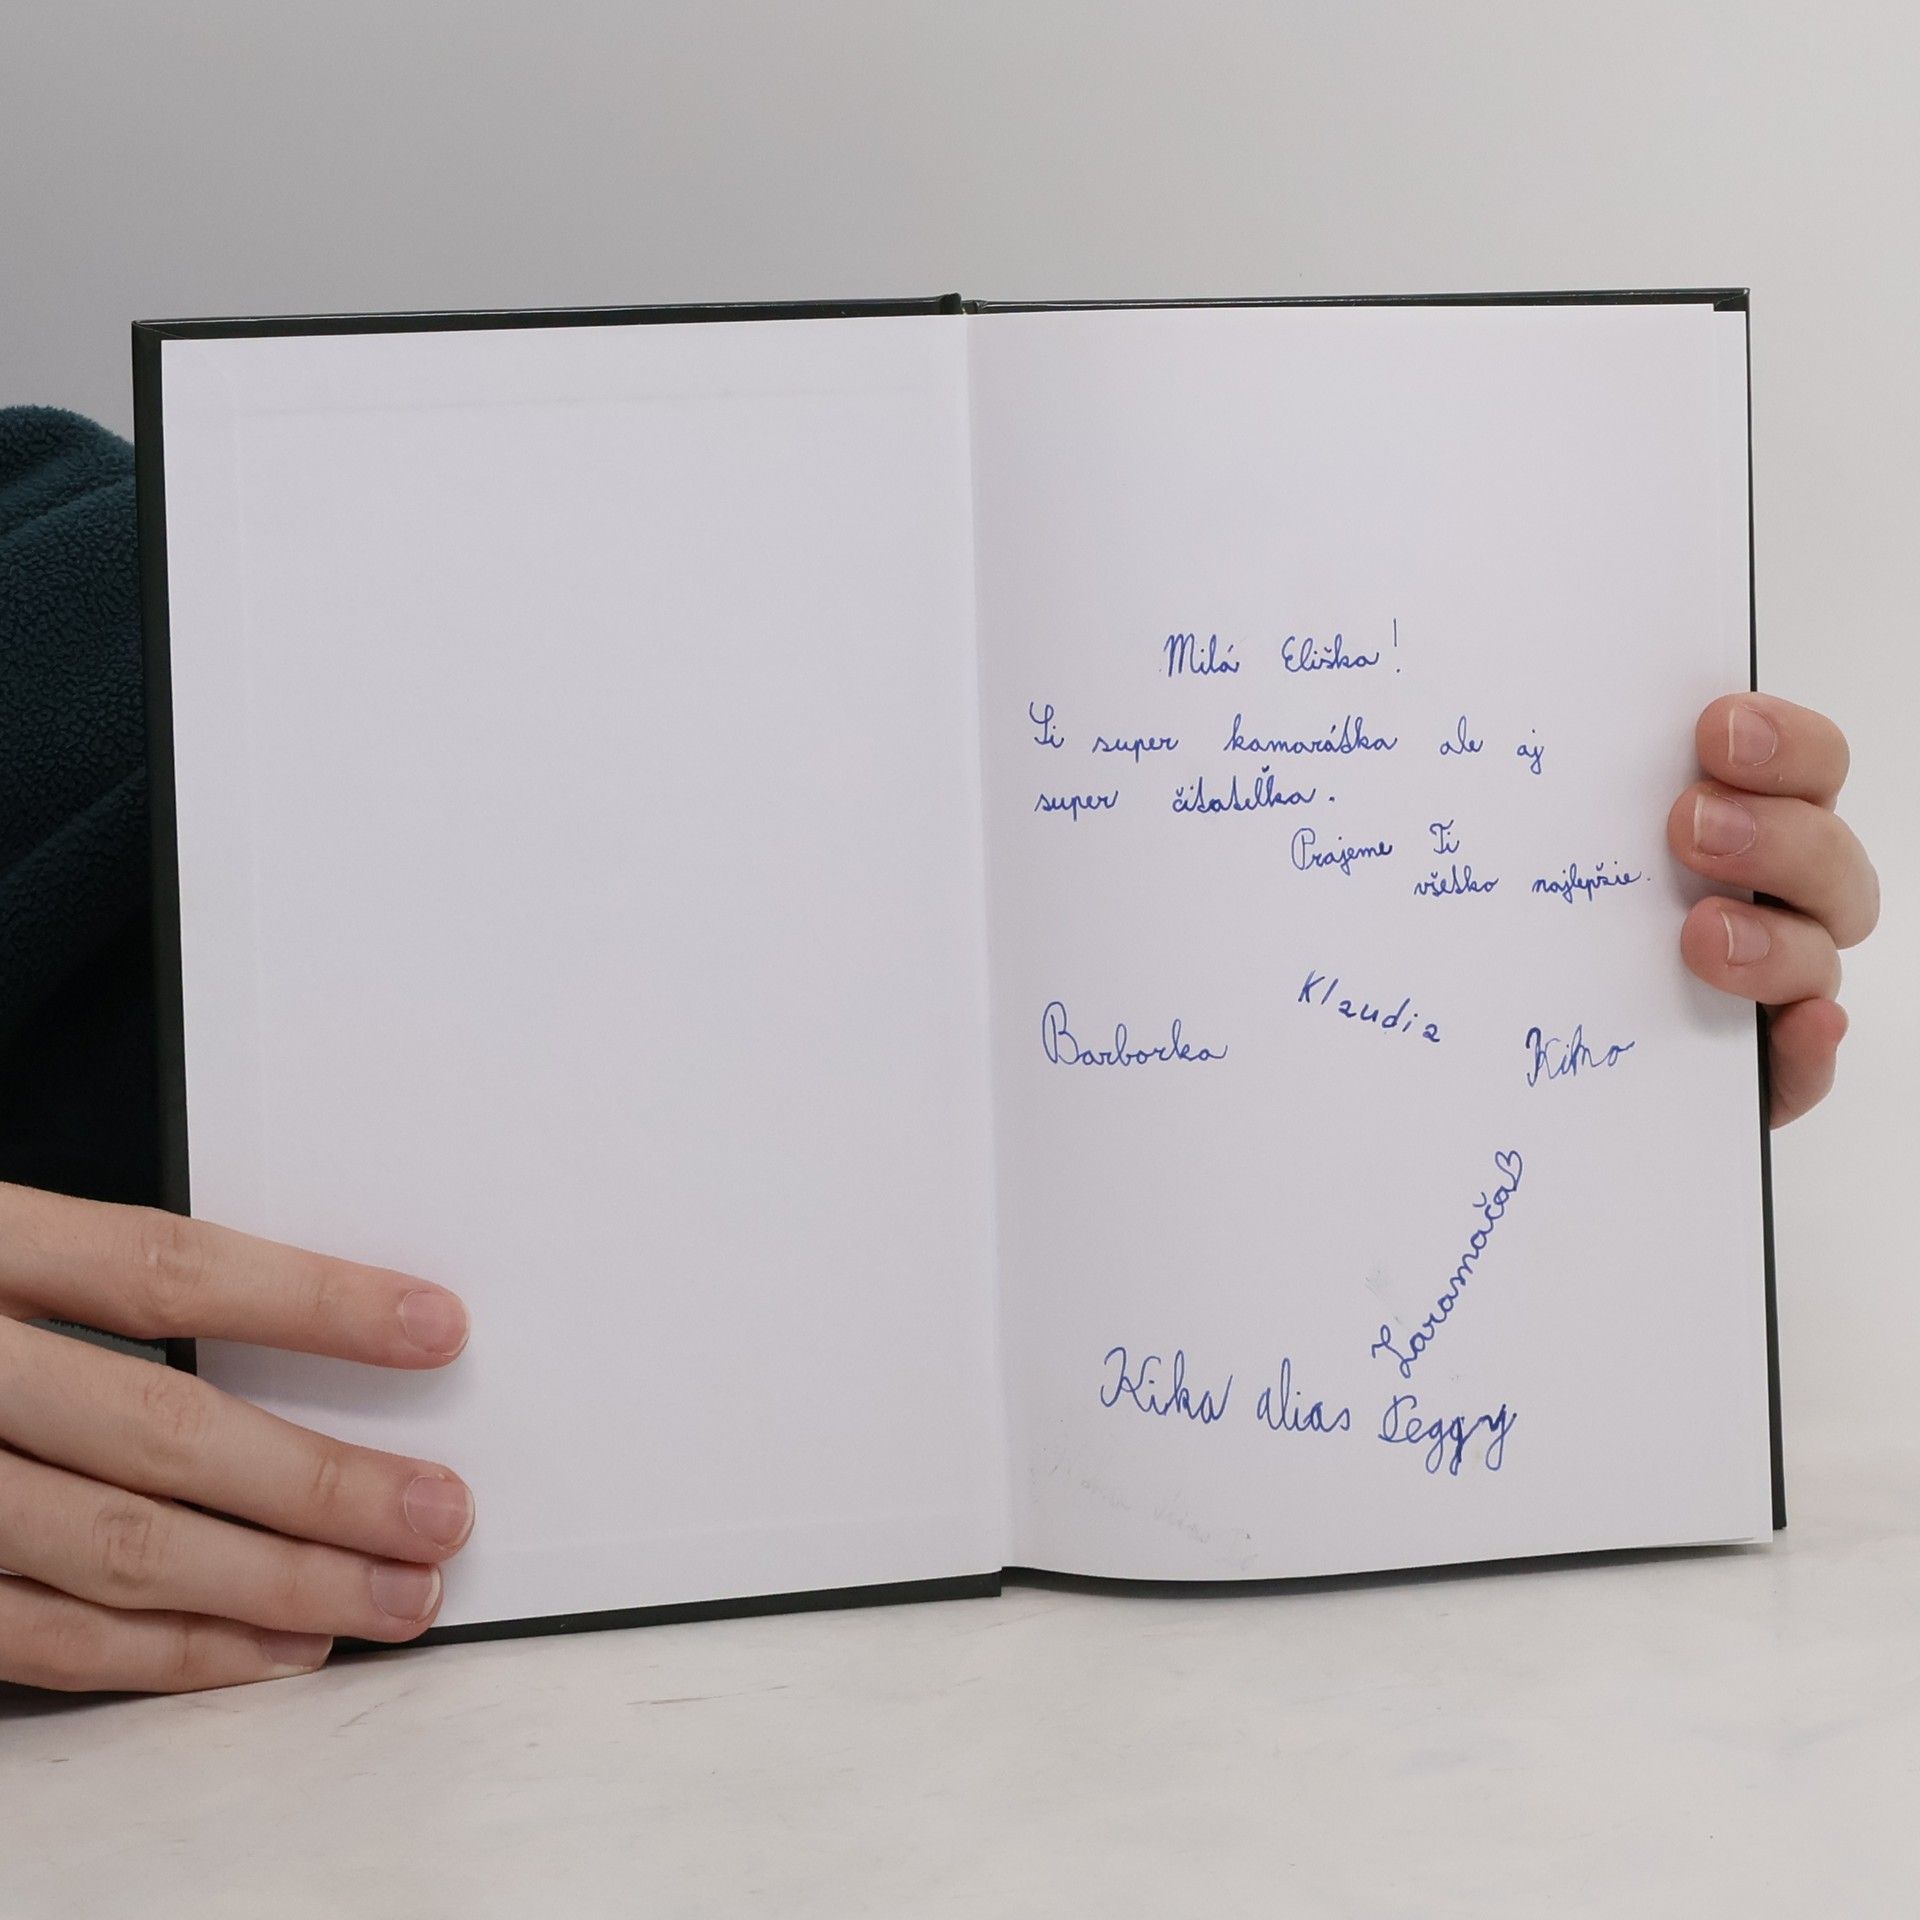 Milá Eliška!
Si super kamarátka ale aj
super čitateľka.
Prajeme Ti
všetko najlepšie.
Klaudia
Barborka
Kiko
Laramača
Kika alias Peggy